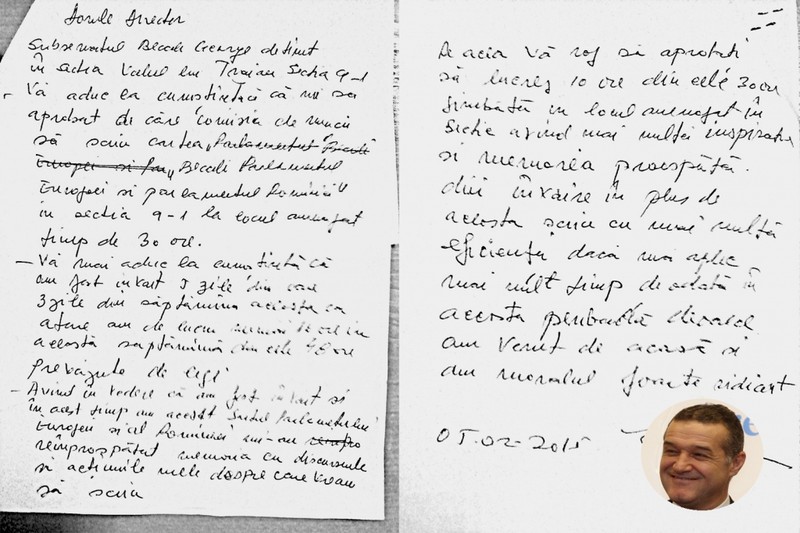 Domule Director
Subsemnatul Becali George detinut
în Sectia Valul lui Traian Sectia 9-1
- Vă aduc la cunostintă că mi sa
aprobat de către comisia de muncă
să scriu cartea „Parlamentul
Europei si „Becali Parlamentul
Europei si parlamentul României"
în sectia 9-1 la locul amenajat
timp de 30 ore.
- Vă mai aduc la cunostintă că
am fost învoit 5 zile din care
3 zile din săptămîna aceasta ca
atare am de lucru numai în
această saptămînă din cele 40 ore
prevăzute de lege
- Avînd în vedere că am fost învoit si
în acest timp am accesat Saitul Parlamentului
Europei si al României mi-au
reîmprospătat memoria cu discursurile
si actiunile mele despre care vreau
să scriu
De aceia Vă rog să aprobati
să lucrez 10 ore din cele 30 ore
sîmbătă în locul amenajat în
Sectie avînd mai multă inspiratie
si memoria proaspătă.
din învoire în plus de
acesta scriu cu mai multă
eficientă dacă mă aplec
mai mult timp deodată în
acesta perioadă deoarece
am venit de acasă si
am moralul foarte ridicat
05.02-2015